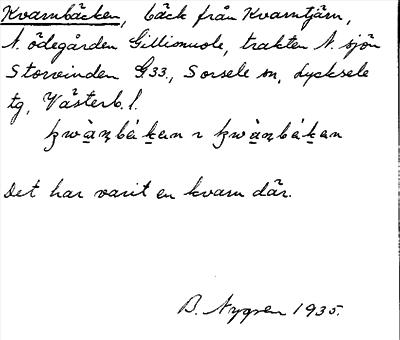 Kvarnbäcken, bäck från Kvarntjärn,
N. ödegården Gillionuole, trakten N. sjön
Storvinden G33., Sorsele sn, Lycksele
tg, Västerb. l.
Det har varit en kvarn där.
B. Nygren 1935.